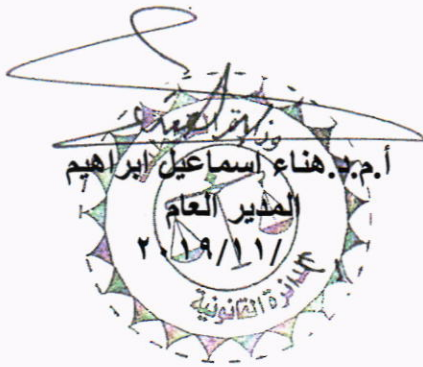 وزارة العدل
أ.م.د.هناء إسماعيل ابراهيم
المدير العام
٢٠١٩/١١/
الدائرة القانونية